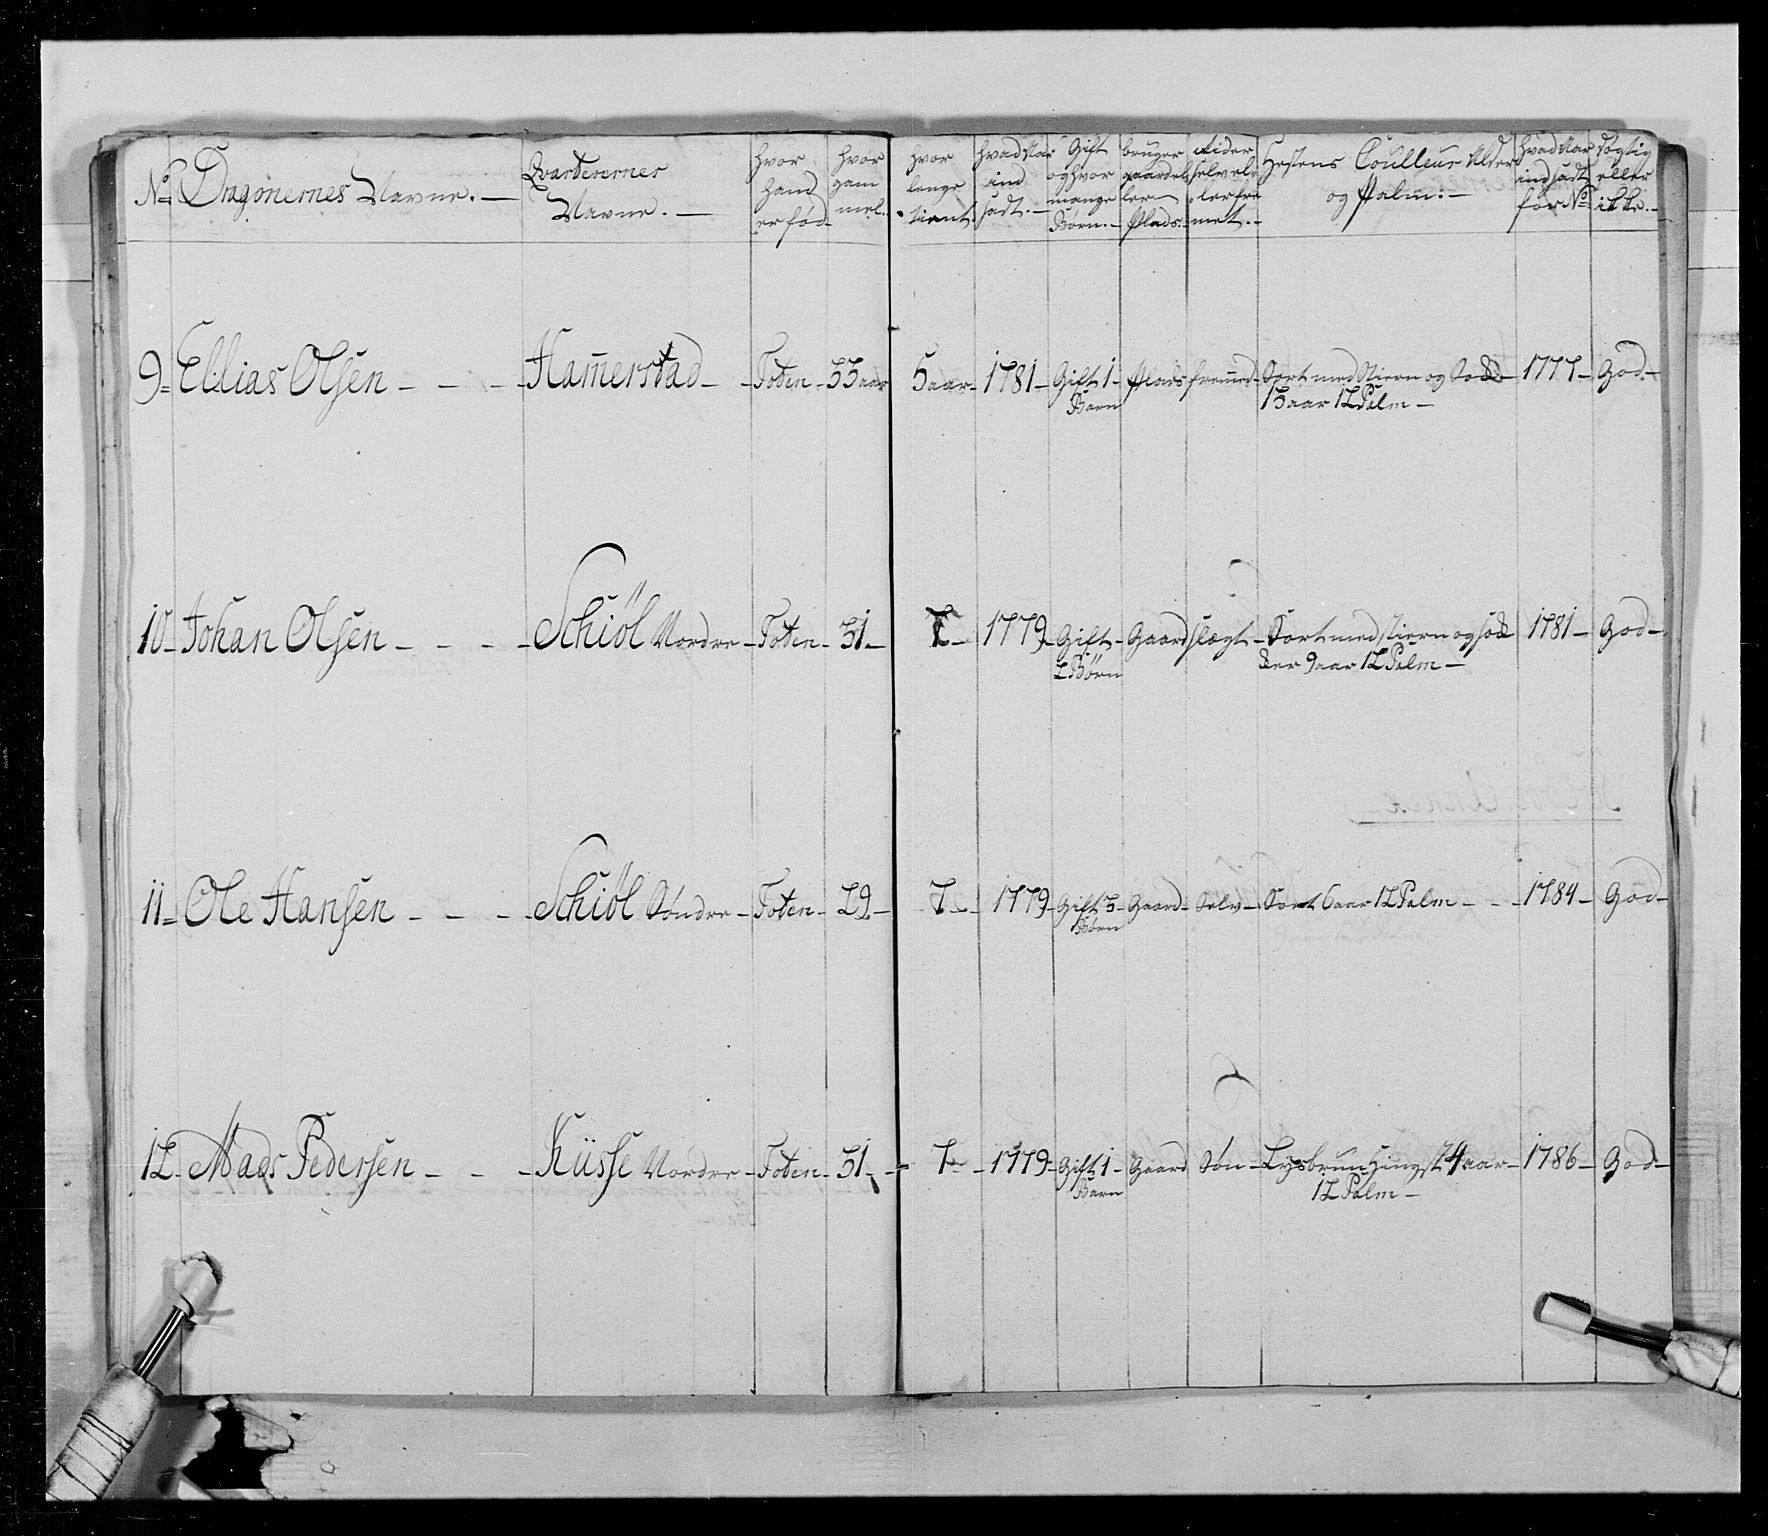 No Dragonernes Navne. — Qvarterernes Navne. — hvor hand er fød hvor gam mel. hvor lenge tient. hvad Aar ind sadt. — Gift og hvor mange Børn. — bruger gaard el ler Plads. — eider selv el ler fre met. — Hestens Coulleur Alder og Palm. — hvad Aar ind sadt for No døgtig eller ikke. —
9 Ellias Olsen — — — Hamerstad — Toten — 33 aar 5 aar — 1781 — Gift 1 — Plads fremed — Sort med Stiern og
Barn 13 aar 12 Palm —
1777 — God —
10 Johan Olsen — — — Schiøl Nordre — Toten — 31 — 7 — 1779 — Gift — Gaard slægt — Sort med stiern og — 1781 — God —
2 Børn 9 aar 12 Palm —
11 Ole Hansen — — — Schiøl Søndre — Toten — 29 — 7 — 1779 — Gift 3 — Gaard — Selv — Sort 6 aar 12 Palm — — 1784 — God —
Børn
12 Mads Pedersen — — — Küsse Nordre — Toten — 31 — 7 — 1779 — Gift 1 — Gaard Søn — Lysbrun Hingst 4 aar — 1786 — God —
Barn 12 Palm —